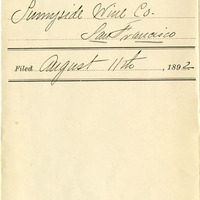 Sunnyside Wine Co.
San Francisco
Filed August 11th, 1892